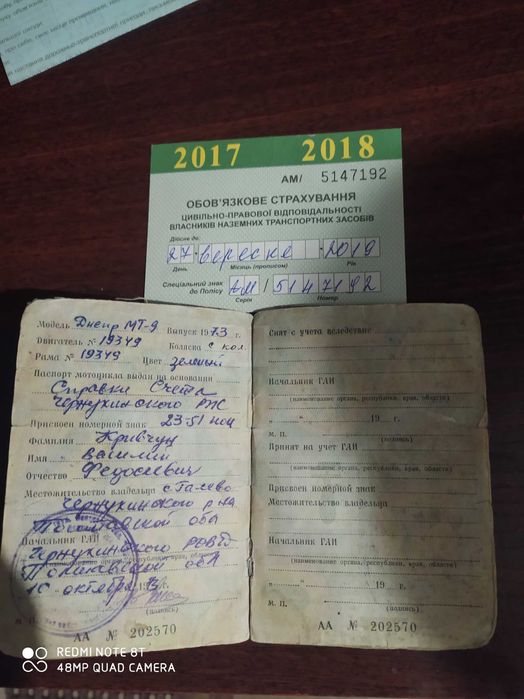 2017 2018
АМ/ 5147192
ОБОВ'ЯЗКОВЕ СТРАХУВАННЯ
ЦИВІЛЬНО-ПРАВОВОЇ ВІДПОВІДАЛЬНОСТІ
ВЛАСНИКІВ НАЗЕМНИХ ТРАНСПОРТНИХ ЗАСОБІВ
Дійсне до:
27 вересня 2019
День Місяць (прописом) Рік
Спеціальний знак до Полісу АМ / 5147192
Серія Номер
Модель Днепр МТ-9 Выпуск 1973 г.
Двигатель № 19349 Коляска с кол
Рама № 19349 Цвет зеленый
Паспорт мотоцикла выдан на основании
Справки Счета
Чернухинского
Присвоен номерной знак 23-51
Фамилия Кривчун
Имя Василий
Отчество Федосеевич
Местожительство владельца
Чернухинского р-на
Полтавской обл
Начальник ГАИ
Чернухинского РОВД
(наименование органа, республики, края, области)
Полтавской обл
10 октября
(подпись)
М. П.
АА № 202570
Снят с учета вследствие
Начальник ГАИ
(наименование органа, республики, края, области)
19 г.
М. П. (подпись)
Принят на учет ГАИ
(наименование органа, республики, края, области)
Присвоен номерной знак
Местожительство владельца
Начальник ГАИ
(наименование органа, республики, края, области)
19 г.
М. П. (подпись)
АА № 202570
REDMI NOTE 8T
48MP QUAD CAMERA